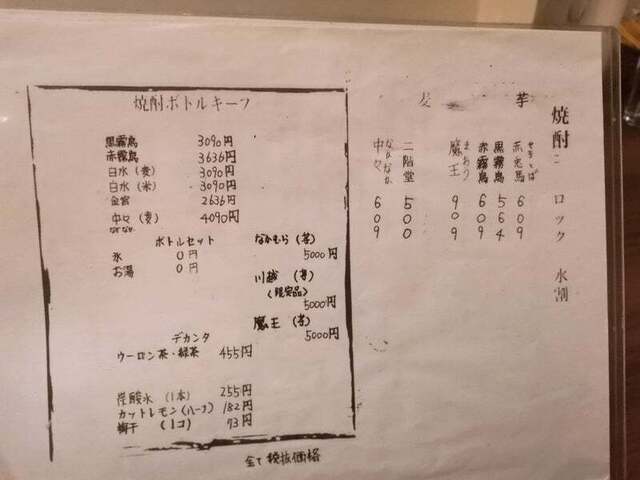 焼酎 ロック 水割
芋
赤兎馬 せきとば 609
黒霧島 564
赤霧島 609
魔王 まおう 909
麦
二階堂 500
中々 なかなか 609
焼酎ボトルキープ
黒霧島 3090円
赤霧島 3636円
白水(麦) 3090円
白水(米) 3090円
金宮 2636円
中々(麦) 4090円
なかなか
ボトルセット
氷 0円
お湯 0円
なかむら(芋)
5000円
川越 (芋)
<限定品>
5000円
魔王 (芋)
5000円
デカンタ
ウーロン茶・緑茶 455円
炭酸水(1本) 255円
カットレモン(ハーフ) 182円
梅干 (1コ) 73円
全て税抜価格